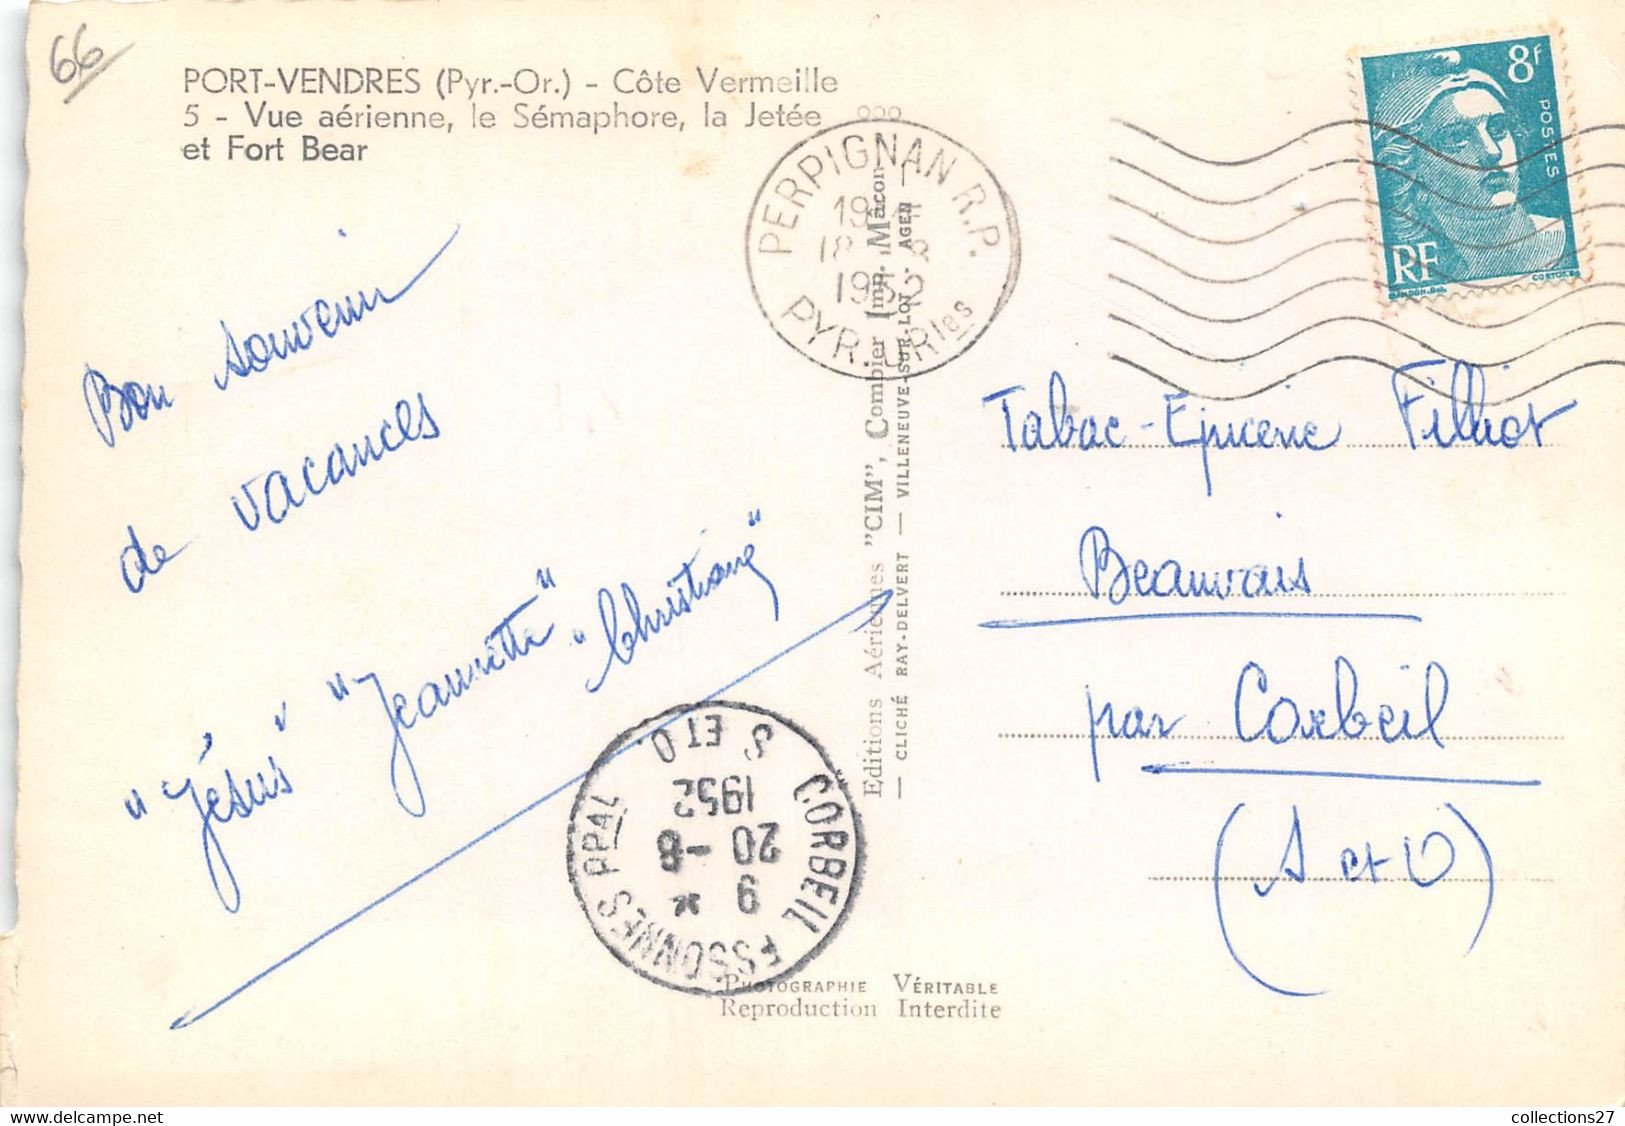 66
PORT-VENDRES (Pyr.-Or.) - Côte Vermeille
5 - Vue aérienne, le Sémaphore, la Jetée
et Fort Bear
Bon souvenir
de vacances
"Jésus" "Jeannette" "Christiane"
PERPIGNAN R.P.
18
PYR. ORles
8f
POSTES
RF
GANDON. Del.
CORTOT. Sc
Editions Aériennes "CIM", Combier Imp. Mâcon
— CLICHÉ RAY-DELVERT — VILLENEUVE-SUR-LOT - AGEN
Tabac-Epicerie Filliot
Beauvais
par Corbeil
(S et O)
CORBEIL ESSONNES PPAL
9 *
20 -8
1952
S. ET O.
PHOTOGRAPHIE VÉRITABLE
Reproduction Interdite
collections27